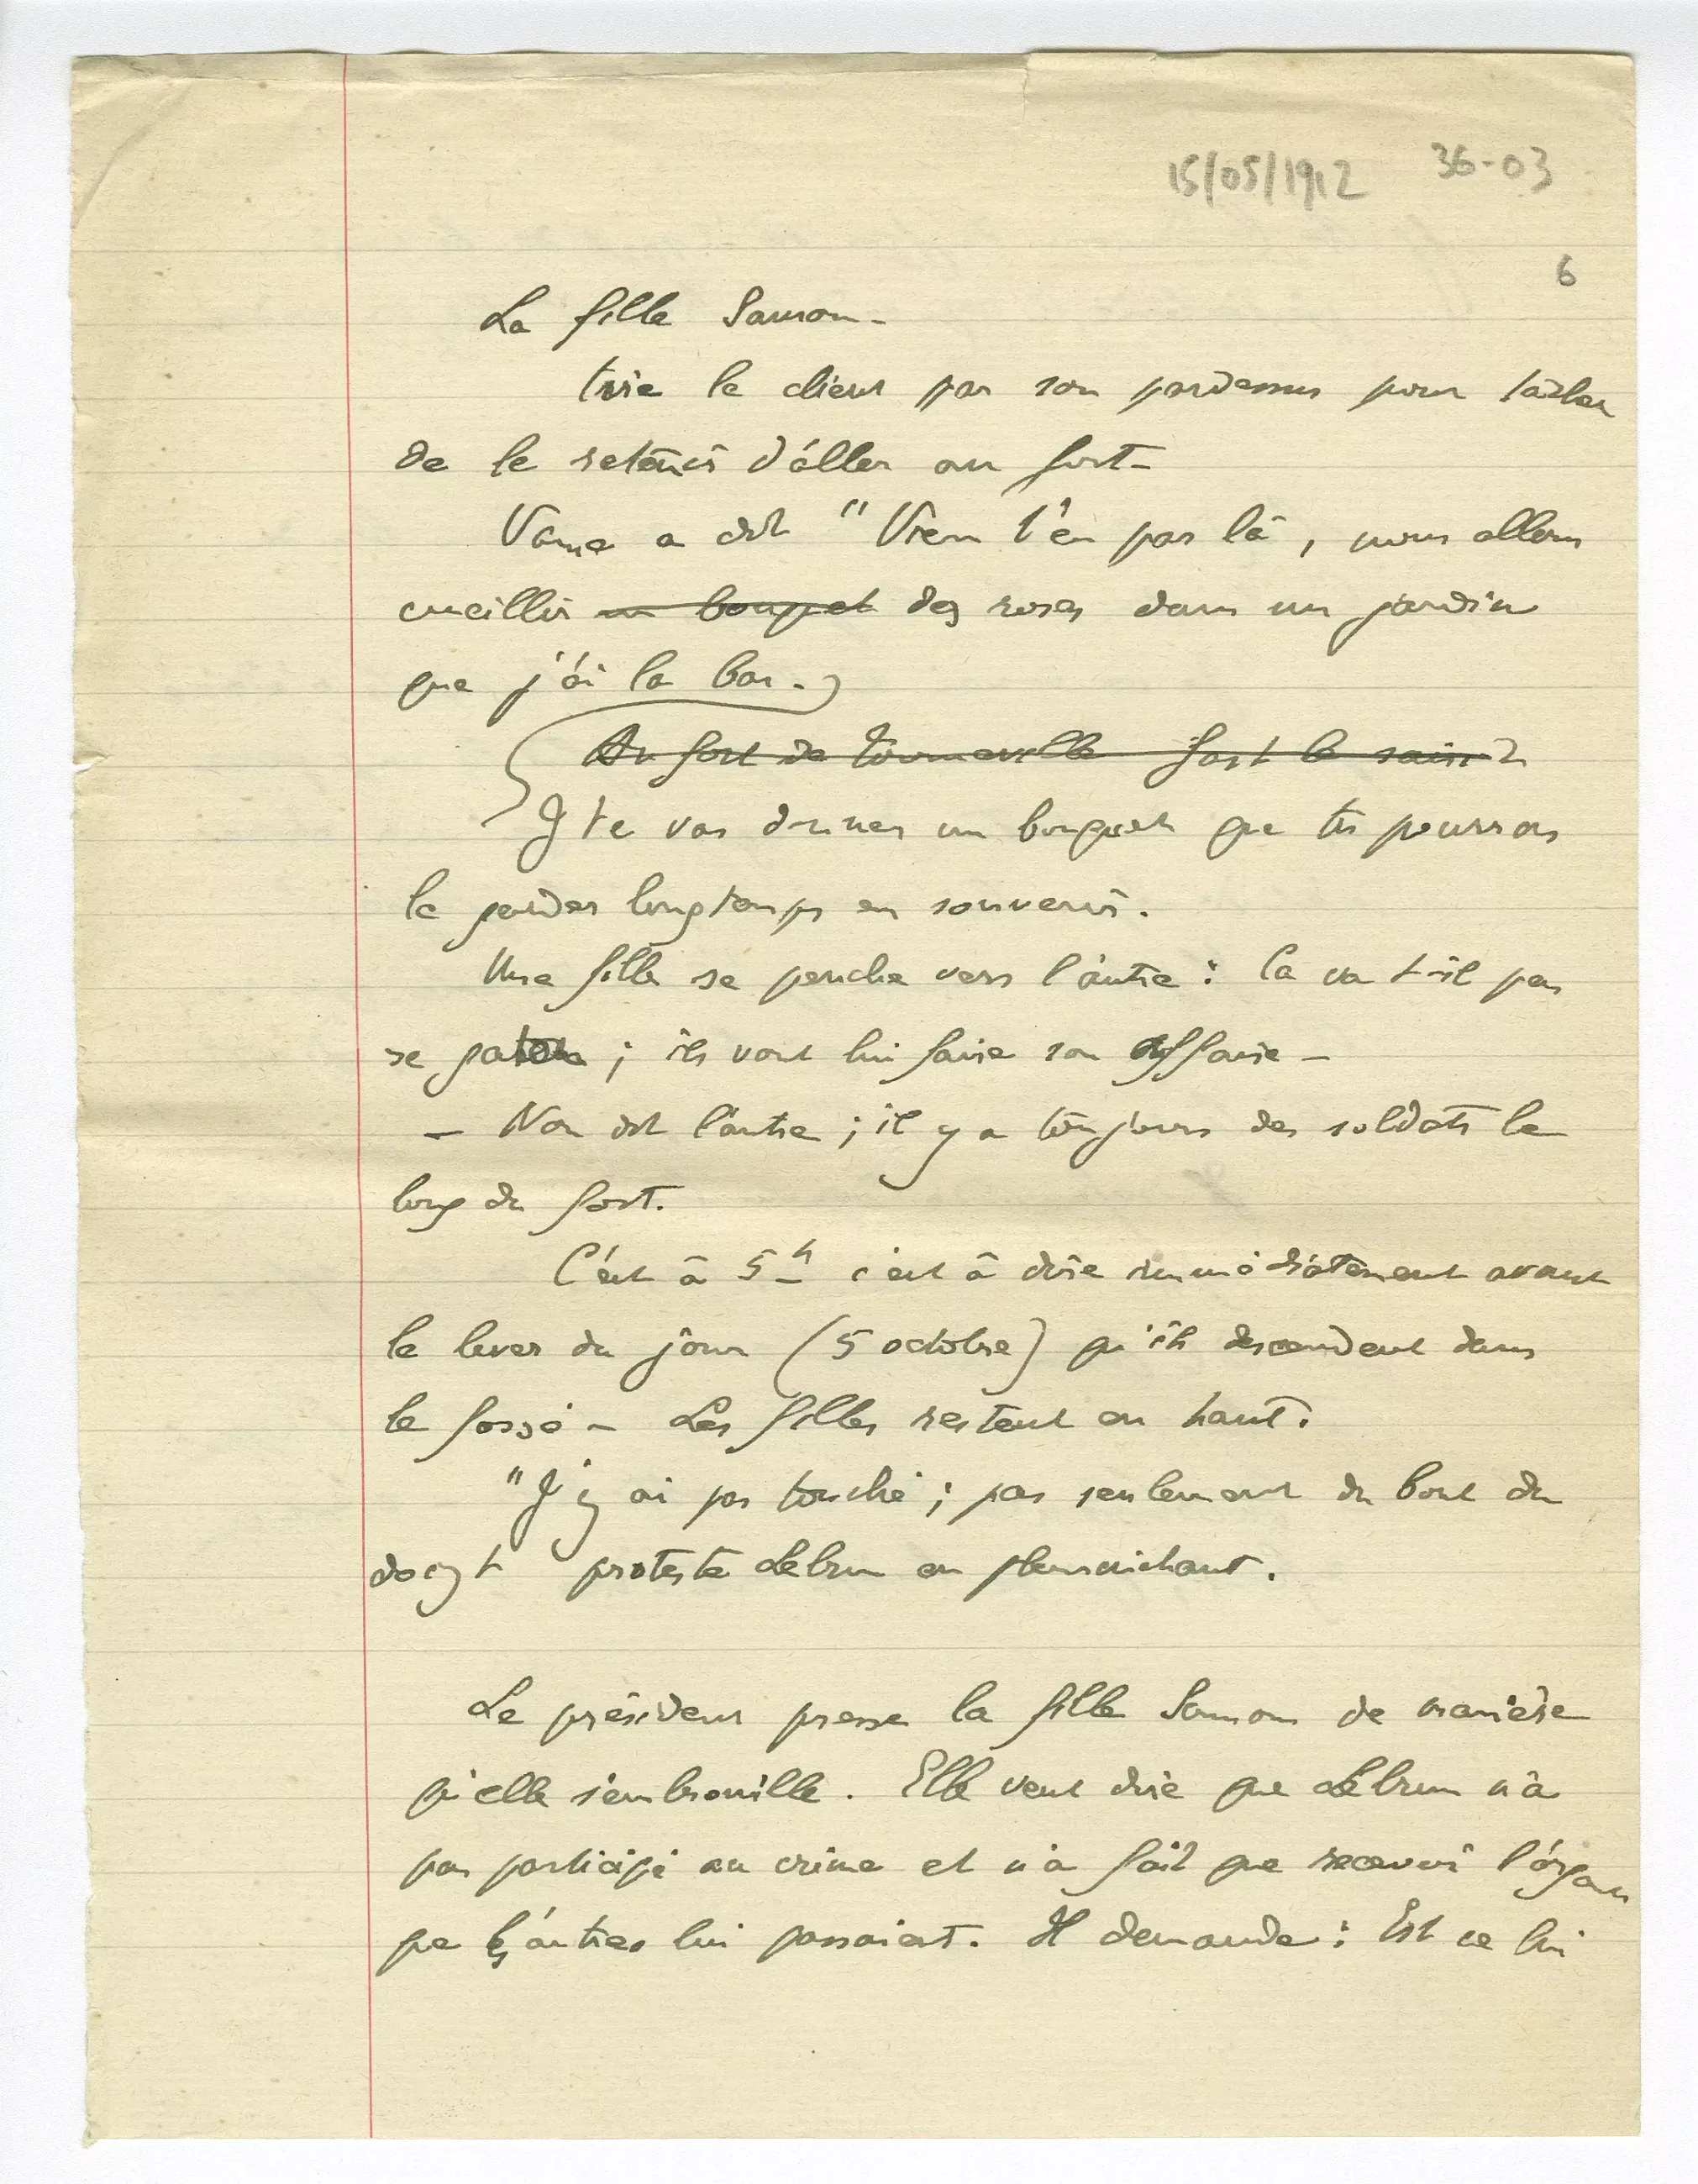 15/05/1912 36-03
6
La fille Samson -
tire le client par son pardessus pour tâcher
de le retenir d'aller au fort -
a dit " Viens t'en par là, nous allons
cueillir un bouquet des roses dans un jardin
que j'ai la bas.
Au fort de Tourneville fort le
J te vas donner un bouquet que tu pourras
le garder longtemps en souvenir.
Une fille se penche vers l'autre : Ca va t-il pas
se ; ils vont lui faire son affaire -
- Non dit l'autre ; il y a toujours des soldats le
long du fort.
C'est à 5 h c'est à dire immédiatement avant
le lever du jour (5 octobre) qu'ils descendent dans
le fossé - Les filles restent en haut.
"J'y ai pas touché ; pas seulement du bout du
doigt proteste Lebrun en pleurnichant.
Le président presse la fille Samson de manière
qu'elle s'embrouille. Elle veut dire que Lebrun n'a
pas participé au crime et n'a fait que recevoir l'argent
que les autres lui passaient. Il demande : Est ce lui